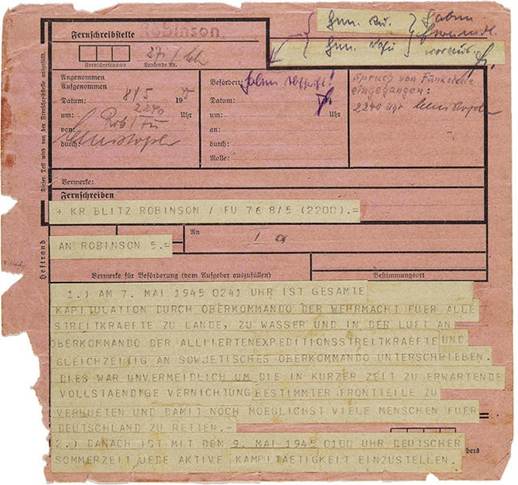 Robinson.
Fernschreibstelle
Fernschreibname
Laufende Nr.
Angenommen
Aufgenommen
Datum: 8/5
um: 2240 Uhr
von: Rob/Fu
durch:
Befördert:
Datum:
um: Uhr
an:
durch:
Rolle:
Spruch von Funkstelle
eingegangen:
2240 Uhr
Vermerke:
Fernschreiben
+ KR BLITZ ROBINSON / FU 76 8/5 (2200).=
AN ROBINSON 5.=
An
Vermerke für Beförderung (vom Aufgeber auszufüllen)
Bestimmungsort
1.) AM 7. MAI 1945 0241 UHR IST GESAMTE
KAPITULATION DURCH OBERKOMMANDO DER WEHRMACHT FUER ALLE
STREITKRAEFTE ZU LANDE, ZU WASSER UND IN DER LUFT AN
OBERKOMMANDO DER ALLIIERTENEXPEDITIONSSTREITKRAEFTE UND
GLEICHZEITIG AN SOWJETISCHES OBERKOMMANDO UNTERSCHRIEBEN.
DIES WAR UNVERMEIDLICH UM DIE IN KURZER ZEIT ZU ERWARTENDE
VOLLSTAENDIGE VERNICHTUNG BESTIMMTER FRONTTEILE ZU
VERHUETEN UND DAMIT NOCH MOEGLICHST VIELE MENSCHEN FUER
DEUTSCHLAND ZU RETTEN.-
2.) DANACH IST MIT DEM 9. MAI 1945 0100 UHR DEUTSCHER
SOMMERZEIT JEDE AKTIVE KAMPFTAETIGKEIT EINZUSTELLEN.